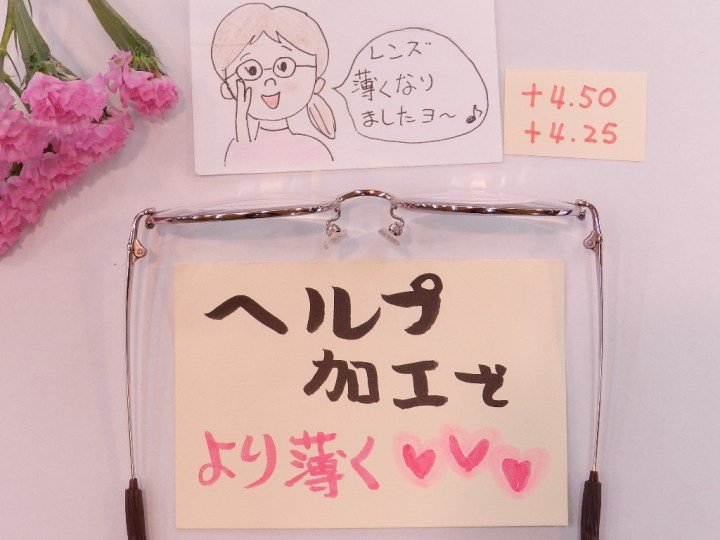 レンズ
薄くなり
ましたヨ〜♪
+4.50
+4.25
ヘルプ
加工で
より薄く♡♡♡